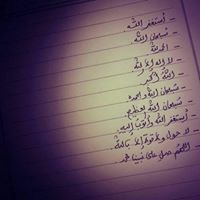 - أستغفر الله.
- سبحان الله
- الحمد لله
- لا إله إلا الله
- الله أكبر
- سبحان الله وبحمده
- سبحان الله العظيم.
- أستغفر الله وأتوب إليه.
- لا حول ولا قوة إلا بالله.
- اللهم صل على نبينا محمد.